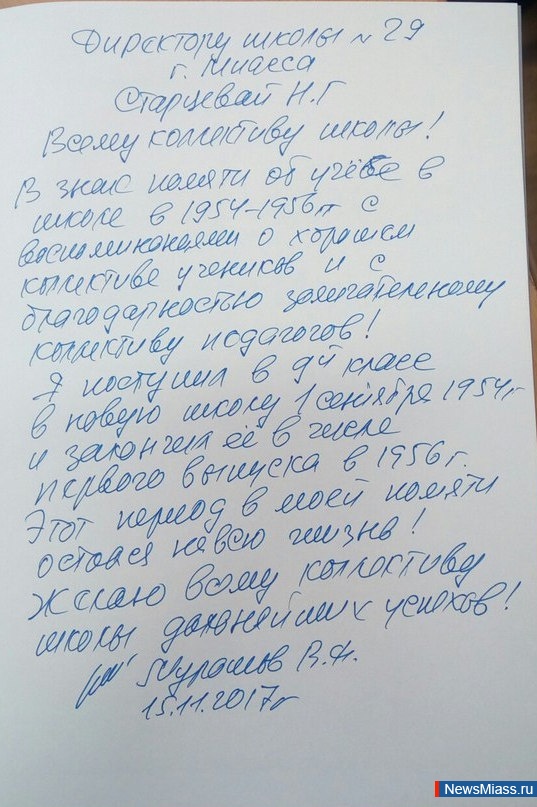 Директору школы № 29
г. Миасса
Старцевай Н.Г
Всему коллективу школы!
В знак памяти об учёбе в
школе в 1954-1956гг с
воспоминаниями о хорошем
коллективе учеников и с
благодарностью замечательному
коллективу педагогов!
Я поступил в 9й класс
в новую школу 1 сентября 1954г
и закончил её в числе
первого выпуска в 1956г.
Этот период в моей памяти
остался на всю жизнь!
Желаю всему коллективу
школы дальнейших успехов!
В.Ф.
15.11.2017г
NewsMiass.ru